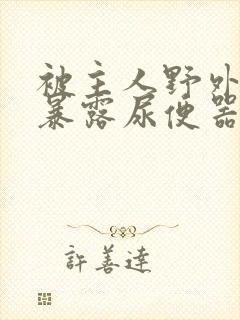 被主人野外
暴露尿便器
許善達